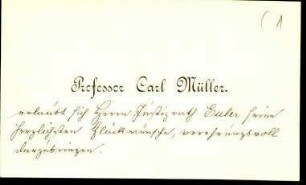 ( 1
Professor Carl Müller.
erlaubt sich Herrn Justizrath Euler seine
herzlichsten Glückwünsche, verehrungsvoll
darzubringen.